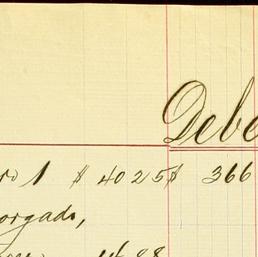 Debe
ro 1 $ 4025 $ 366
orgado,